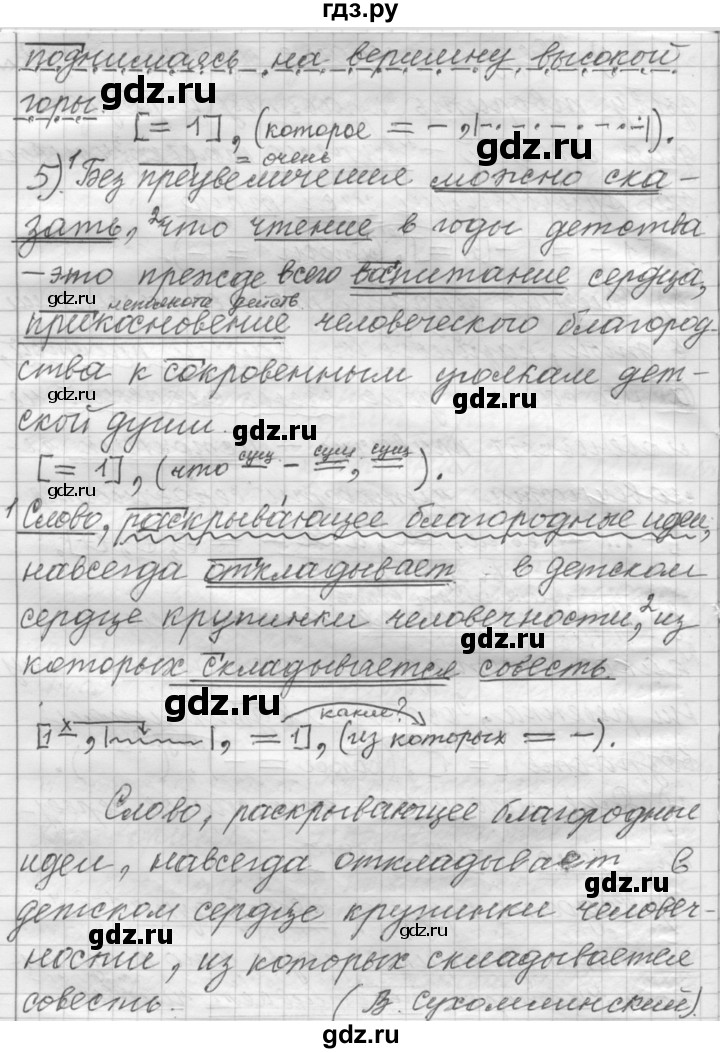 гдз.ру
поднимаясь на вершину высокой
горы.
gdz.ru
[= 1], (которое = –, |–·–·–·–·–|).
= очень
5).¹Без преувеличения можно ска-
зать, ²что чтение в годы детства
– это прежде всего воспитание сердца,
gdz.ru
действ.
прикосновение человеческого благород
gdz.ru
ства к сокровенным уголкам дет-
gdz.ru
ской души.
сущ сущ сущ
[= 1], (что – – =, =).
gdz.ru
gdz.ru
1 Слово, раскрывающее благородные идеи,
навсегда откладывает в детском
сердце крупинки человечности, ²из
gdz.ru
которых складывается совесть.
gdz.ru
какие?
[1 x –, |~~~~|, = 1], (из которых = –).
Слово, раскрывающее благородные
идеи, навсегда откладывает в
gdz.ru
детском сердце крупинки человеч-
gdz.ru
gdz.ru
ности, из которых складывается
совесть. (В. Сухомлинский).
gdz.ru
gdz.ru